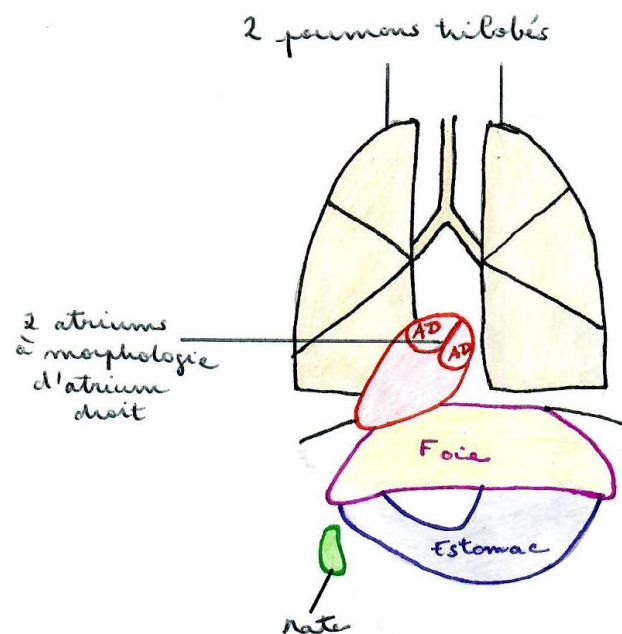 2 poumons trilobés
2 atriums
à morphologie
d'atrium
droit
AD
AD
Foie
Estomac
rate